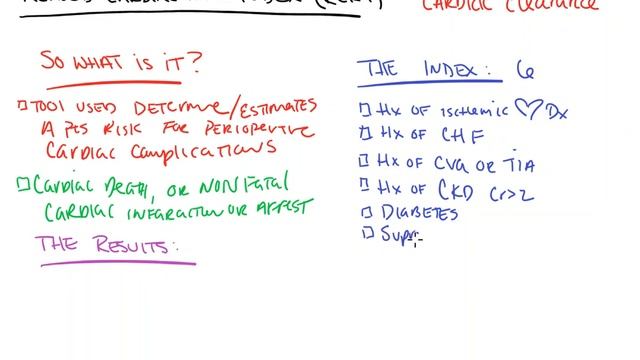 CARDIAC Clearance
SO WHAT IS IT?
TOOL USED Determine/ESTIMATES
A PTS RISK FOR PERIOPERTIVE
CARDIAC COMPLICATIONS
CARDIAC DEATH, OR NONFATAL
CARDIAC INFARCTION OR ARREST
THE RESULTS:
THE INDEX: 6
Hx OF ISCHEMIC ♡ Dx
Hx OF CHF
Hx OF CVA OR TIA
Hx OF CKD Cr>2
DIABETES
Supr